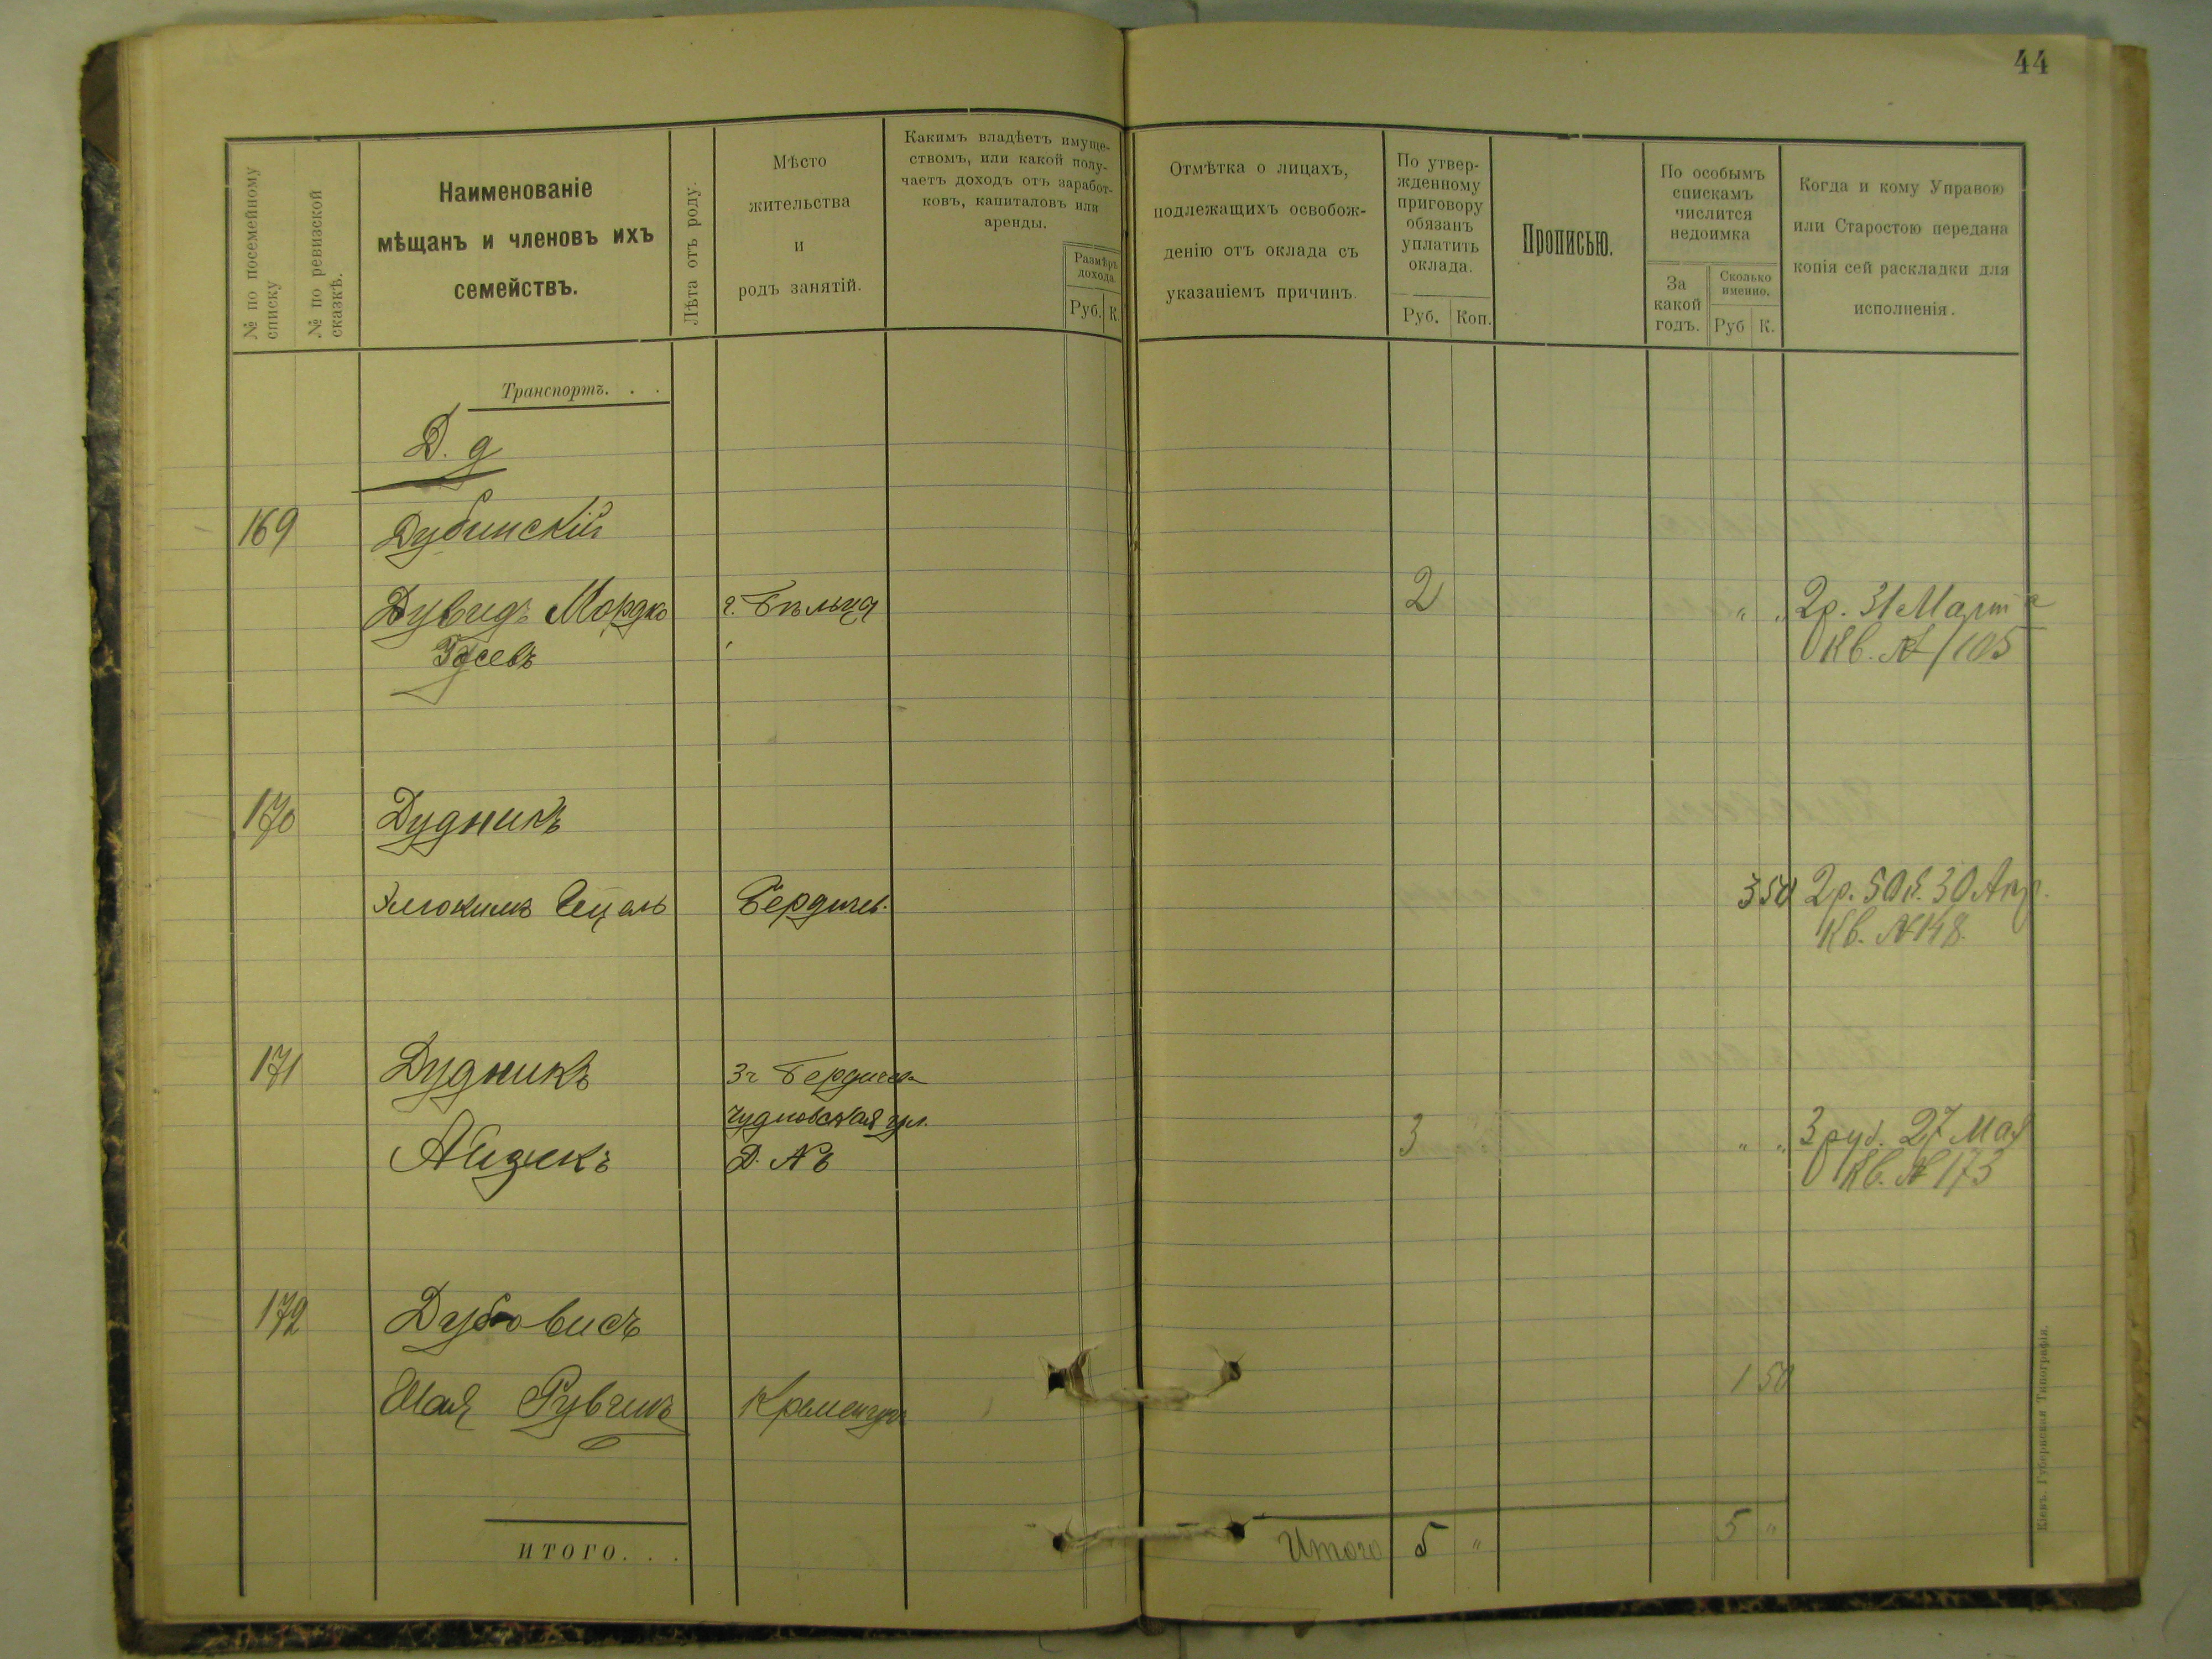 44
№ по посемейному
списку
№ по ревизской
сказкѣ.
Наименованіе
мѣщанъ и членовъ ихъ
семействъ.
Лѣта отъ роду.
Мѣсто
жительства
и
родъ занятій.
Какимъ владѣетъ имуще-
ствомъ, или какой полу-
чаетъ доходъ отъ заработ-
ковъ, капиталовъ или
аренды.
Размѣръ
дохода
Руб. К.
Отмѣтка о лицахъ,
подлежащихъ освобож-
денію отъ оклада съ
указаніемъ причинъ.
По утвер-
жденному
приговору
обязанъ
уплатить
оклада.
Руб. Коп.
Прописью.
По особымъ
спискамъ
числится
недоимка
За
какой
годъ.
Сколько
именно.
Руб К.
Когда и кому Управою
или Старостою передана
копія сей раскладки для
исполненія.
Транспортъ. . .
Д. д
169 Дубинскій
Дувидъ Мордко г. Бѣльцы 2 " " 2р. 31 Март
Кв. № 105
170 Дудникъ
Бердичев. 3 50 2р. 50к. 30 Апр.
Кв. № 148.
171 Дудникъ Бердичев
Чудновская ул. 3 " " 3 руб. 27 Мая
Айзикъ Д. № Кв. № 173
172 Дубовисъ
Шая Рувчикъ Кременчугъ 1 50
ИТОГО. . . Итого 5 " 5 "
Кіевъ. Губернская Типографія.